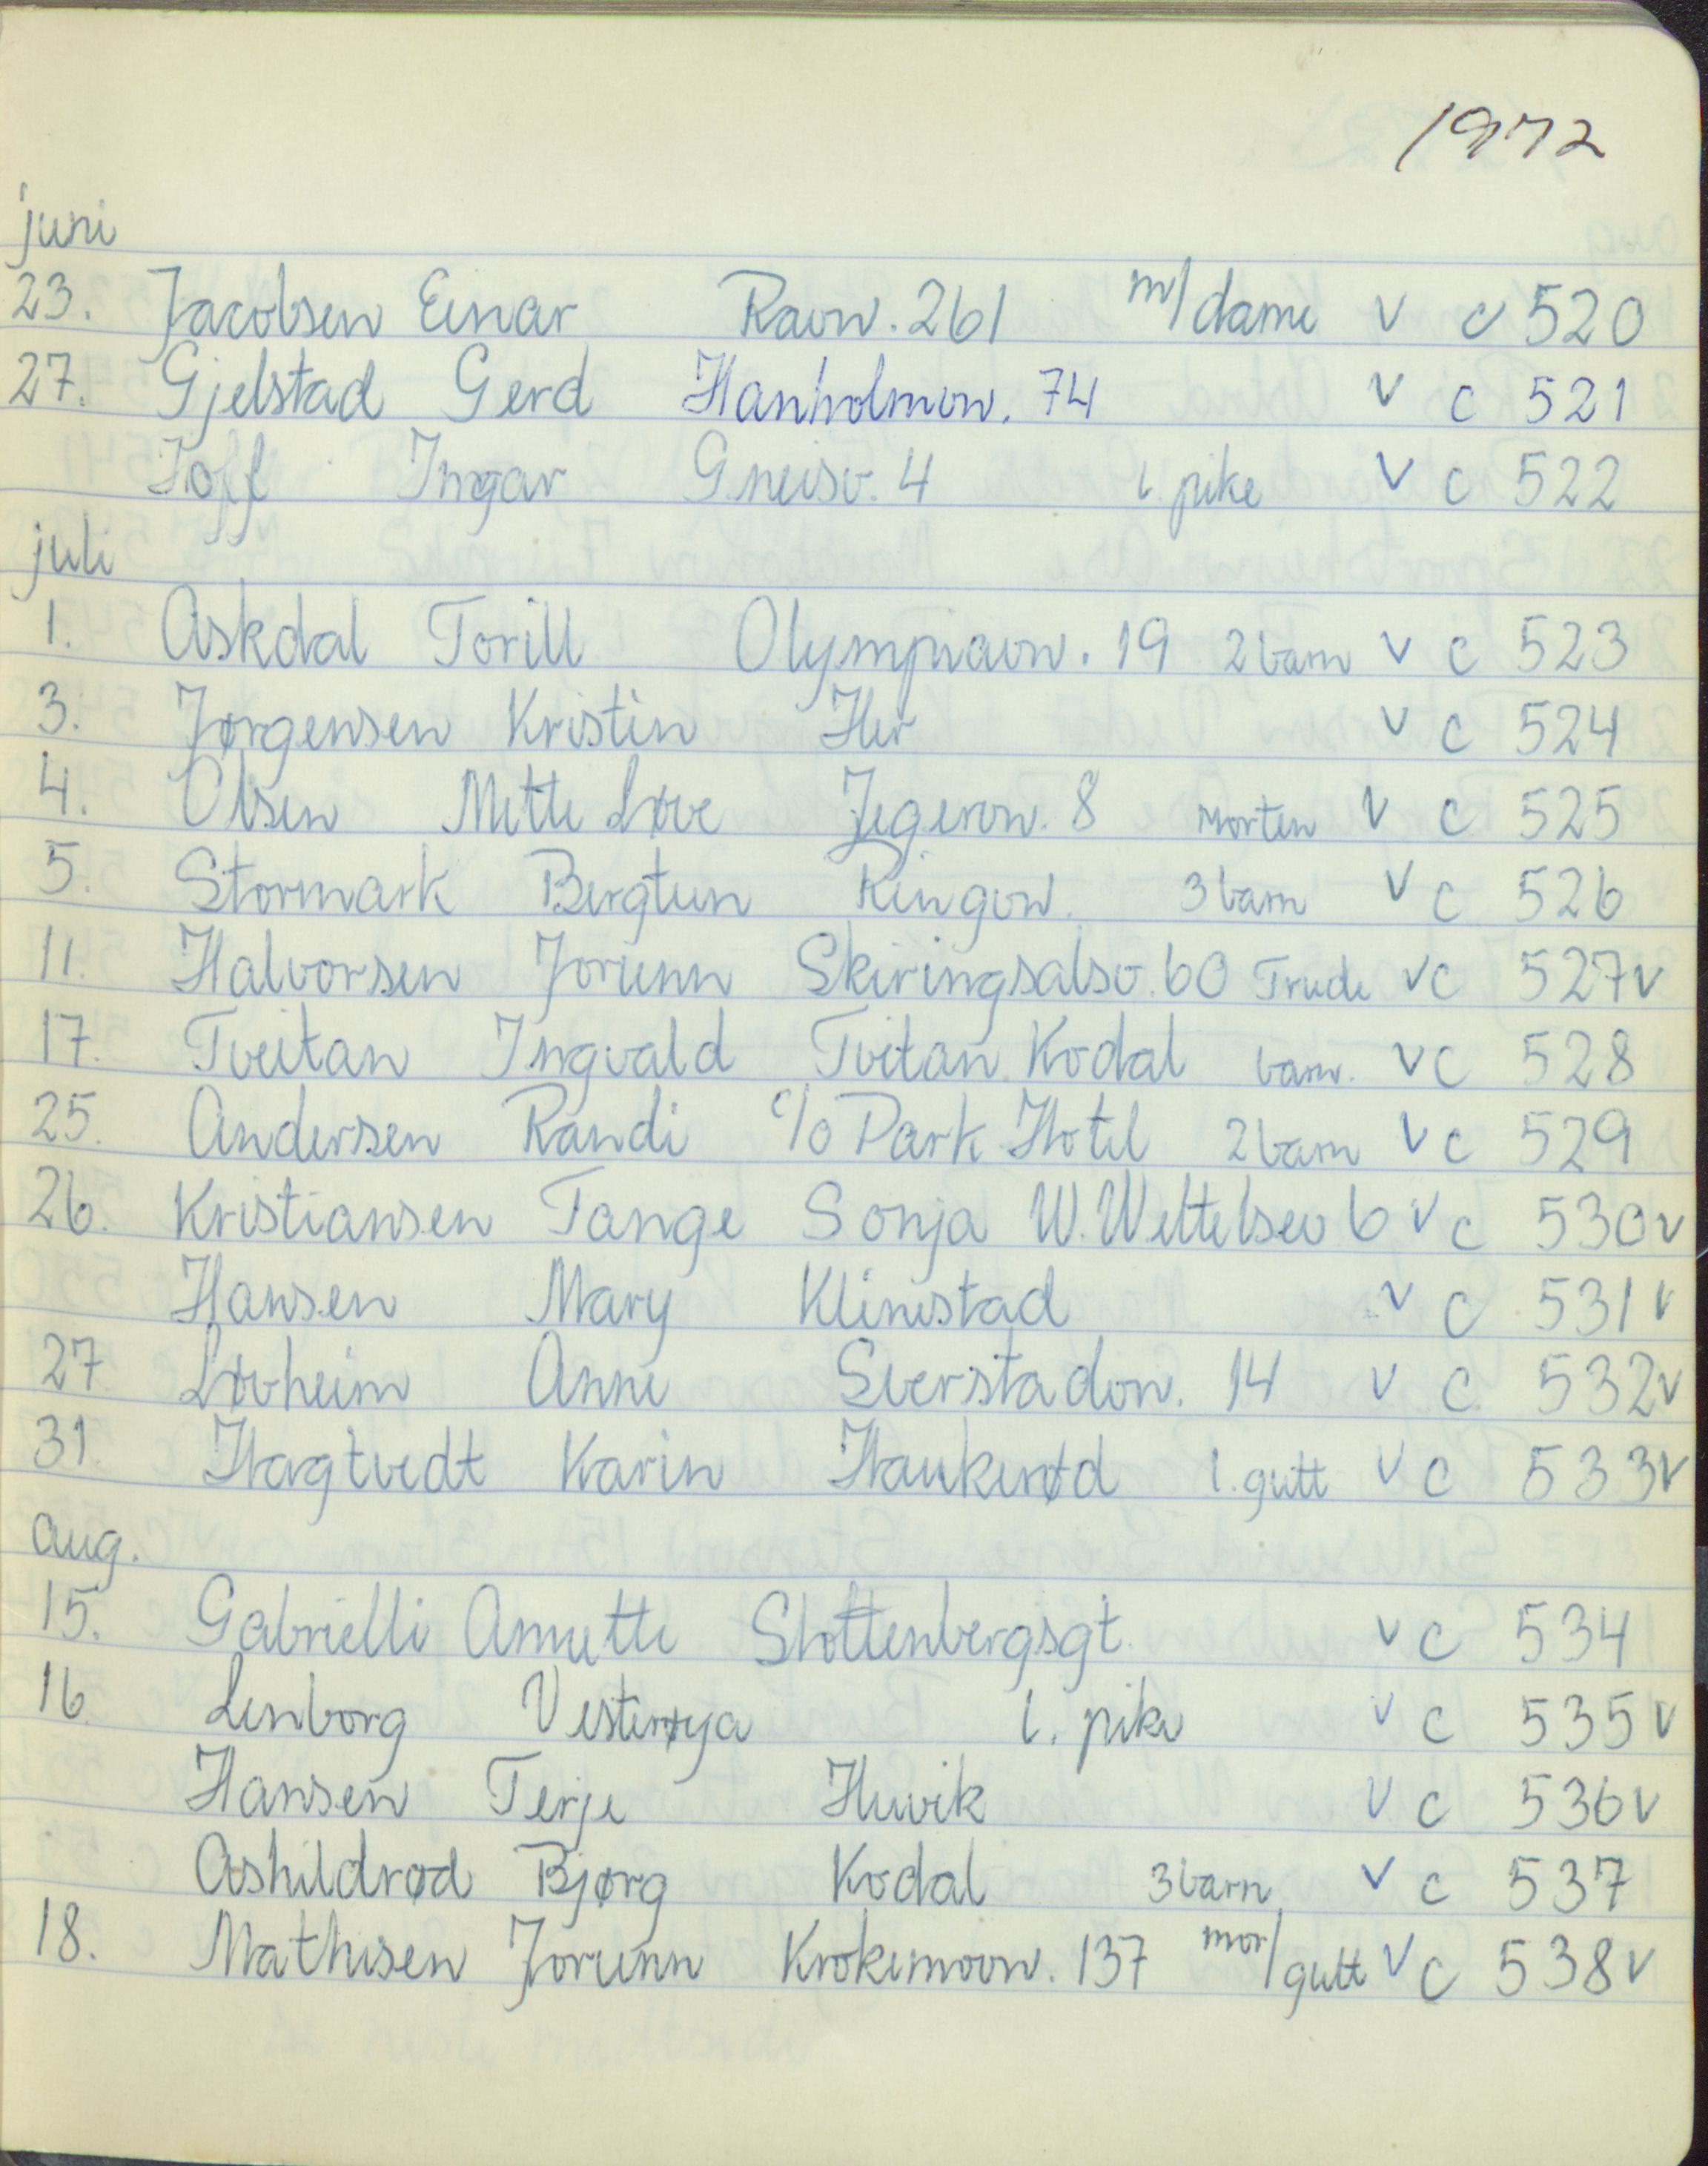 1972
juni
23. Jacobsen Einar Ravn. 261 m/dame v c 520
27. Gjelstad Gerd Hanholmvn. 74 v c 521
Hoff Ingar Gneisv. 4 l. pike v c 522
juli
1. Askdal Torill Olympiavn. 19 2 barn v c 523
3. Jørgensen Kristin Her v c 524
4. Olsen Mette Løve Jegervn. 8 Morten v c 525
5. Stormark Bergtun Ringvn. 3 barn v c 526
11. Halvorsen Jorunn Skiringsalsv. 60 Trude v c 527 v
17. Tveitan Ingvald Tveitan Kodal barn. v c 528
25. Andersen Randi c/o Park Hotel 2 barn v c 529
26. Kristiansen Tange Sonja W. Wettelsev 6 v c 530 v
Hansen Mary Klinestad v c 531 v
27 Løvheim Anne Sverstadvn. 14 v c 532 v
31. Hagtvedt Karin Haukerød l. gutt v c 533 v
aug.
15. Gabrielli Annette Stoltenbergsgt. v c 534
16 Lenborg Vesterøya l. pike v c 535 v
Hansen Terje Huvik v c 536 v
Ashildrød Bjørg Kodal 3 barn v c 537
18. Mathisen Jorunn Krokemovn. 137 mor/gutt v c 538 v